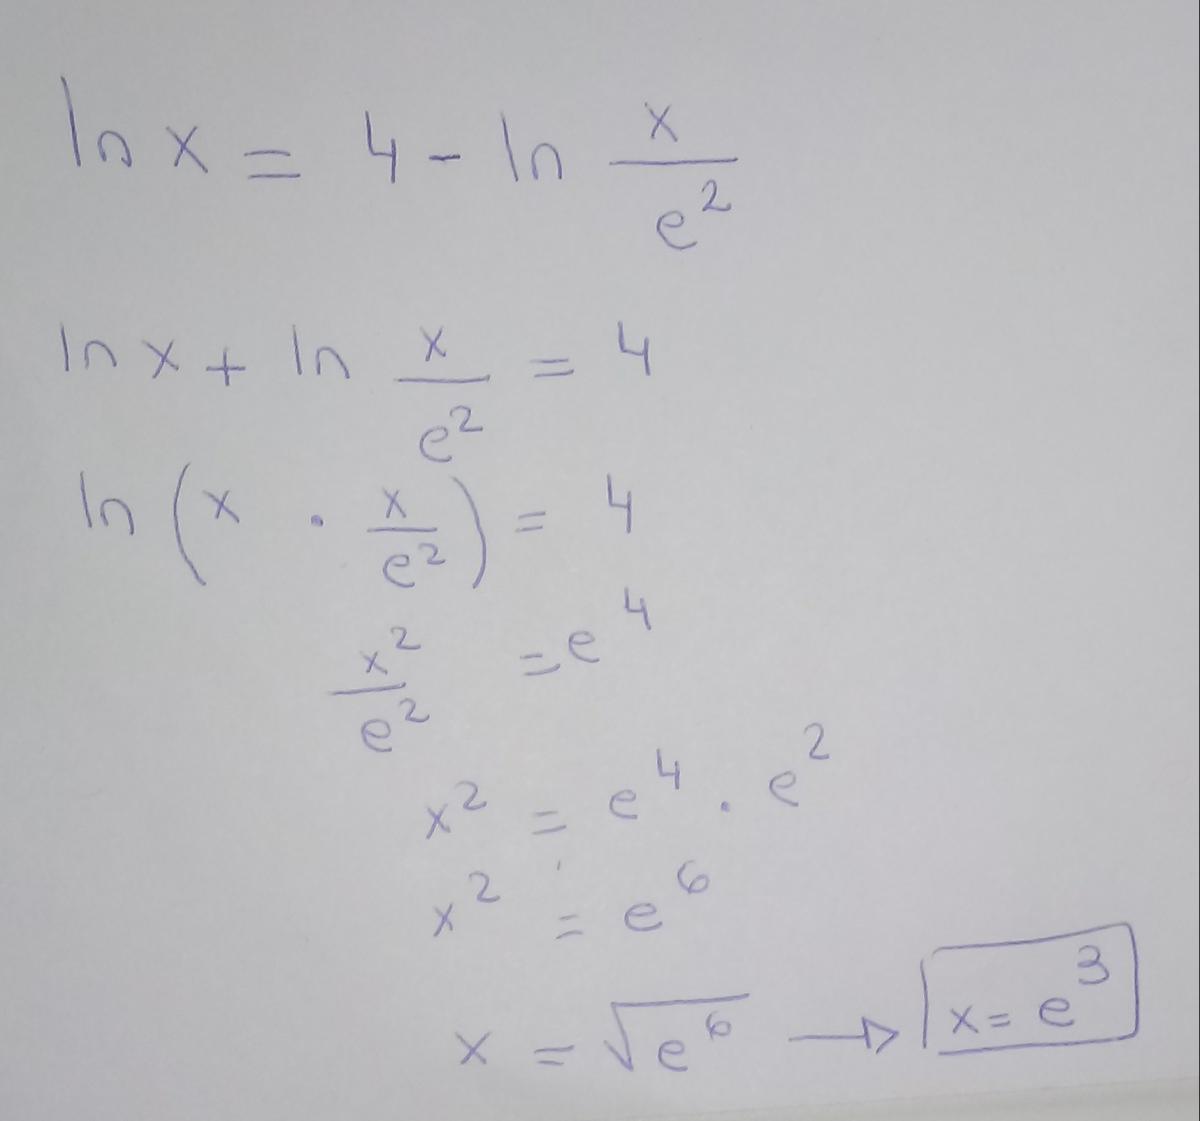 ln x = 4 - ln x/e²
ln x + ln x/e² = 4
ln (x · x/e²) = 4
x²/e² = e⁴
x² = e⁴ · e²
x² = e⁶
x = √e⁶ → x = e³